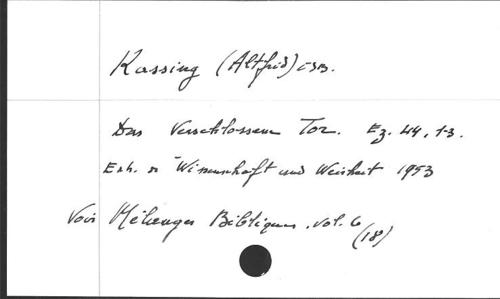 Kassing (Altfrid) OSB.
Das Verschlossene Tor. Ez. 44, 1-3.
Exh. in "Wissenschaft und Weisheit 1953
Voir Mélanges Bibliques. vol. 6
(18)